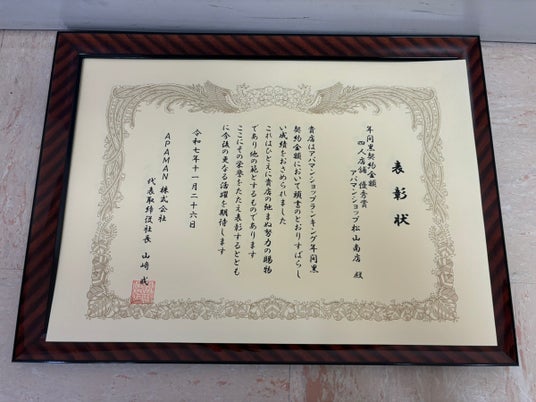 表彰状
年間黒契約金額
四人店舗 優秀賞
アパマンショップ松山南店 殿
貴店はアパマンショップランキング年間黒
契約金額において頭書のとおりすばらし
い成績をおさめられました
これはひとえに貴店の弛まぬ努力の賜物
であり他の範とするものであります
ここにその栄誉をたたえ表彰するととも
に今後の更なる活躍を期待します
令和七年十一月二十六日
APAMAN 株式会社
代表取締役社長 山﨑 戒